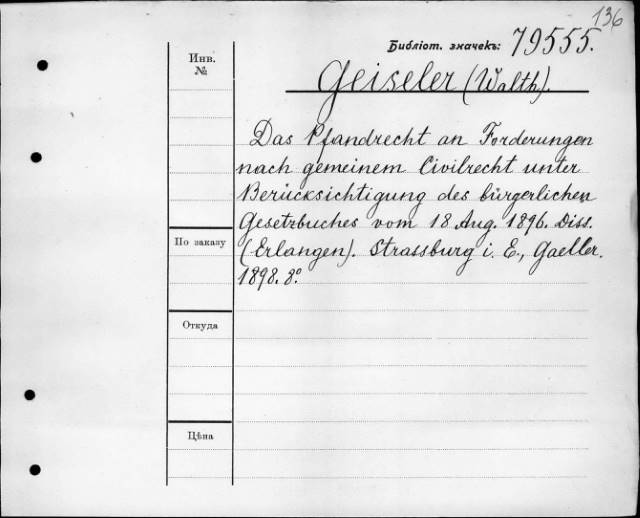 136
Библіот. значекъ: 79555.
Инв.
№
Geiseler (Walth).
Das Pfandrecht an Forderungen
nach gemeinem Civilrecht unter
Berücksichtigung des bürgerlichen
Gesetzbuches vom 18 Aug. 1896. Diss.
По заказу
(Erlangen). Strassburg i. E., Gaeller.
1898. 8°.
Откуда
Цѣна